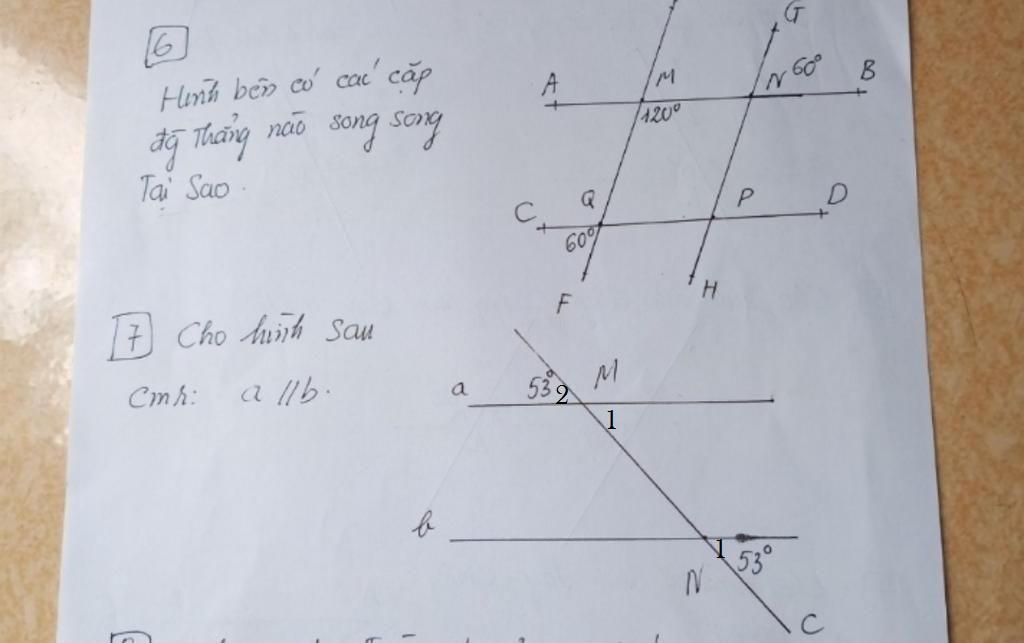 6
Hình bên có các cặp
đg Thẳng nào song song
Tại Sao.
G
A
M
N
60°
B
120°
C
Q
P
D
60°
F
H
7 Cho hình sau
Cmr: a // b.
a
53°
2
M
1
b
N
1
53°
C